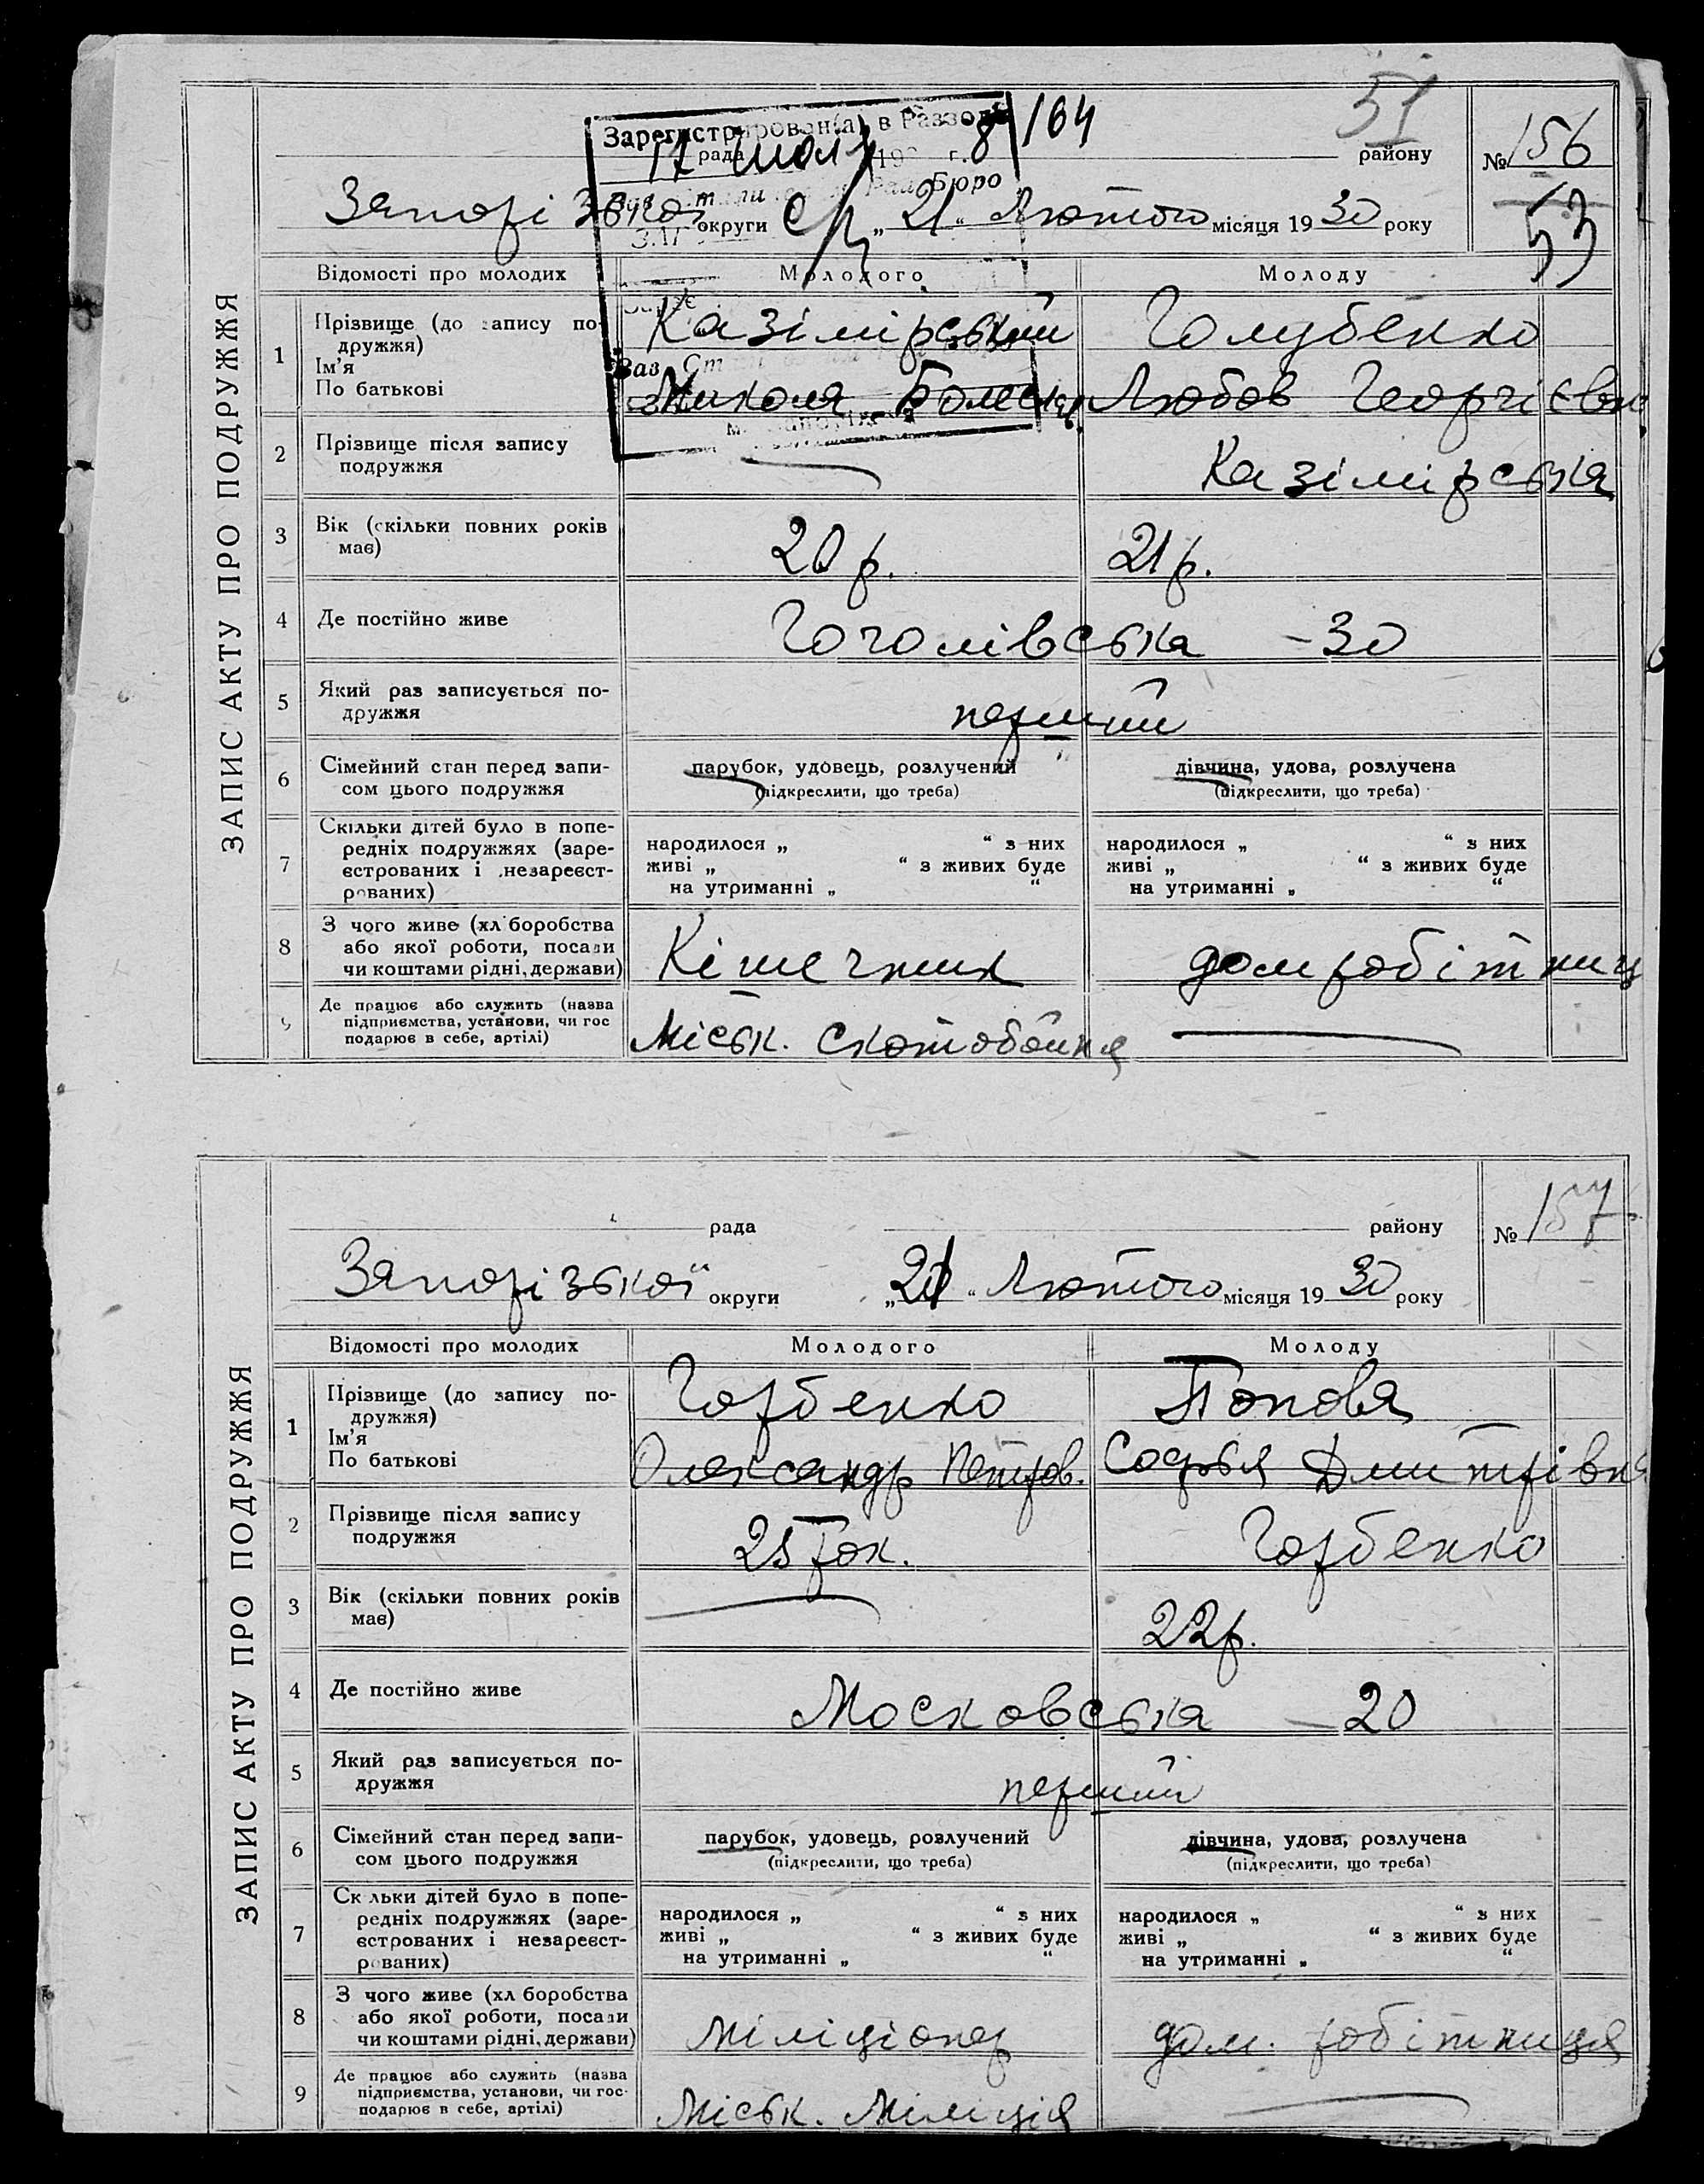 51
Зарегистрирован(а) в Разводе
17 июля 193 г. 8/164
рада району №156
Бюро
Запорізької округи „21“ Лютого місяця 1930 року
53
ЗАПИС АКТУ ПРО ПОДРУЖЖЯ
Відомості про молодих Молодого Молоду
1 Прізвище (до запису по-
дружжя)
Ім'я
По батькові
Казімірський Голубенко
Микола Любов Георгієвн
2 Прізвище після запису
подружжя
Казімірська
3 Вік (скільки повних років
має)
20 р. 21 р.
4 Де постійно живе Гоголівська – 30
5 Який раз записується по-
дружжя
перший
6 Сімейний стан перед запи-
сом цього подружжя
парубок, удовець, розлучений дівчина, удова, розлучена
(підкреслити, що треба) (підкреслити, що треба)
7 Скільки дітей було в попе-
редніх подружжях (заре-
єстрованих і незареєст-
рованих)
народилося „ “ з них народилося „ “ з них
живі „ “ з живих буде живі „ “ з живих буде
на утриманні „ “ на утриманні „ “
8 З чого живе (хлiборобства
або якої роботи, посади
чи коштами рідні, держави)
Кішечник домробітниц
9 Де працює або служить (назва
підприємства, установи, чи гос
подарює в себе, артілі)
Міськ. Скотобойня
ЗАПИС АКТУ ПРО ПОДРУЖЖЯ
рада району №157
Запорізької округи „21“ Лютого місяця 1930 року
Відомості про молодих Молодого Молоду
1 Прізвище (до запису по-
дружжя)
Ім'я
По батькові
Горбенко Попова
Олександр Петров. Софья Дмитрівна
2 Прізвище після запису
подружжя
25 рок. Горбенко
3 Вік (скільки повних років
має)
22 р.
4 Де постійно живе Московська – 20
5 Який раз записується по-
дружжя
перший
6 Сімейний стан перед запи-
сом цього подружжя
парубок, удовець, розлучений дівчина, удова, розлучена
(підкреслити, що треба) (підкреслити, що треба)
7 Скільки дітей було в попе-
редніх подружжях (заре-
єстрованих і незареєст-
рованих)
народилося „ “ з них народилося „ “ з них
живі „ “ з живих буде живі „ “ з живих буде
на утриманні „ “ на утриманні „ “
8 З чого живе (хл боробства
або якої роботи, посади
чи коштами рідні, держави)
Міліціонер дом. робітниця
9 Де працює або служить (назва
підприємства, установи, чи гос-
подарює в себе, артілі)
Міськ. Міліція